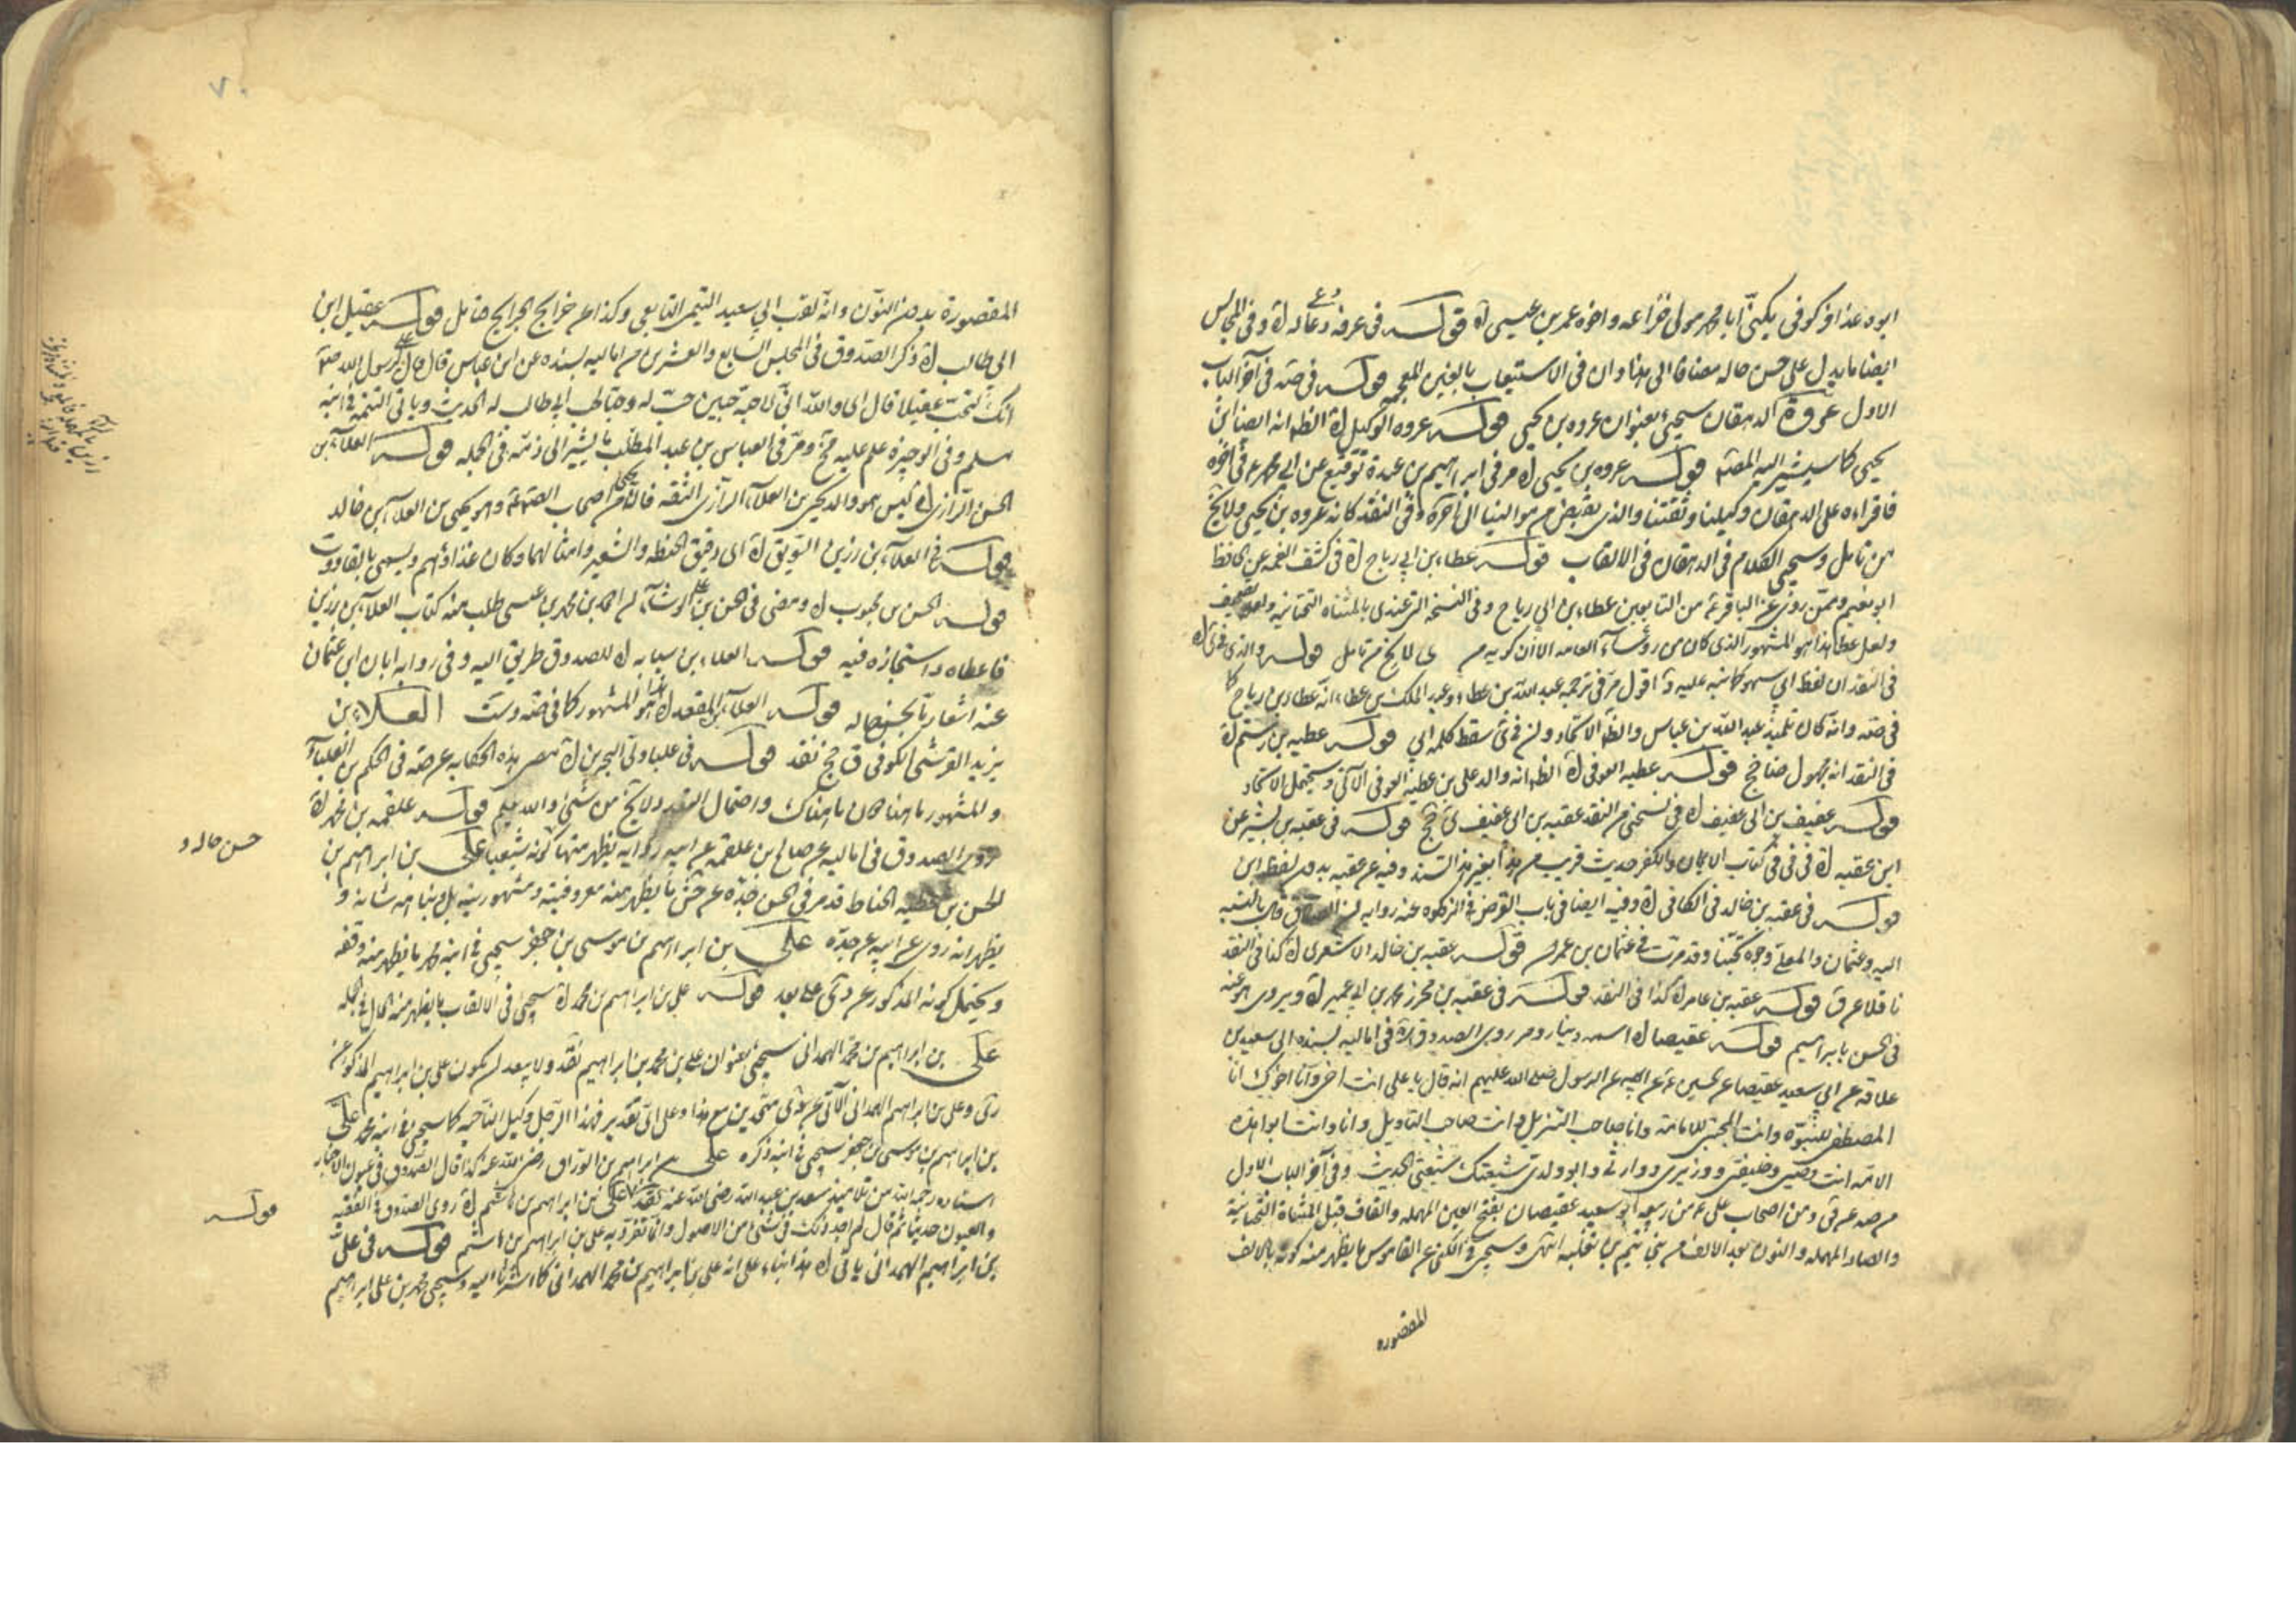 ابوه غذافر كوفى يكنى ابا محمد مولى خزاعه واخوه عمر بن عيسى قوله فى عرفه دعا له وفى المجالس
ايضا ما يدل على حسن حاله مضافا الى هذا وان فى الاستيعاب بالغين المعجمه قوله فى ضه فى آخر الباب
الاول عروة الدهقان سيجئ بعنوان عروه بن يحيى قوله عروه الوكيل الظ انه ايضا ابن
يحيى كما سيشير اليه المصنف قوله عروه بن يحيى مر فى ابراهيم بن عبدة توقيع عن ابى محمد ع فى آخره
فاقراءه على الدهقان وكيلنا وثقتنا والذى يقبض من موالينا الى آخره وفى النقد كانه عروه بن يحيى ولا يخ
من تامل وسيجئ الكلام فى الدهقان فى الالقاب قوله عطاء بن ابى رياح فى كشف الغمه عن الحافظ
ابو نعيم وممن روى عن الباقر ع من التابعين عطاء بن ابى رياح وفى النسخه التى عندى بالمثناه التحتانيه
ولعل عطا هذا هو المشهور الذى كان من رؤساء العامه الا ان كونه من لا يخ من تامل قوله والذى فى
فى النقد ان لفظ ابى سهو كما نبه عليه اقول مر فى ترجمه عبد الله بن عطاء وعبد الملك بن عطاء انه عطاء بن رياح كما
فى ضه وانه كان تلميذ عبد الله بن عباس والظ الاتحاد وان فى سقط كلمه ابى قوله عطيه بن رستم
فى النقد انه مجهول ضا جخ قوله عطيه العوفى الظ انه والد على بن عطية العوفى الآتى ويحتمل الاتحاد
قوله عفيف بن ابى عفيف فى نسختى من النقد عقبه بن ابى عفيف ى جخ قوله فى عقبه بن بشير عن
ابن عقبه فى فى كتاب الايمان والكفر حديث قريب من هذا بغير هذا السند وفيه عن عقبه بدون لفظ ابن
قوله فى عقبه بن خالد فى الكافى وفيه ايضا فى باب القرض فى الزكوه عنه روايه ان الصادق قال بالنسبه
اليه وعثمان والمعلى وجوه تحبنا وقد مرت فى عثمان بن عمران قوله عقبه بن خالد الاشعرى كذا فى النقد
ناقلا عن ق قوله عقبه بن عامر كذا فى النقد قوله فى عقبه بن محرز محمد بن ابى عمير ويروى هو عنه
فى الحسن بابراهيم قوله عقيصا اسمه دينار ومر روى الصدوق فى اماليه بسنده الى سعيد بن
علاقه عن ابى سعيد عقيصا عن الحسين ع عن ابيه عن الرسول صلى الله عليهم انه قال يا على انت اخى وانا اخوك انا
المصطفى للنبوة وانت المجتبى للامامة وانا صاحب التنزيل وانت صاحب التاويل وانا وانت ابوا هذه
الامه انت وصيى وخليفتى ووزيرى ووارثى وابو ولدى شيعتك شيعتى الحديث وفى آخر الباب الاول
من صه عن قى ومن اصحاب على ع من ربيعه ابو سعيد عقيصان بفتح العين المهمله والقاف قبل المثناة التحتانية
والصاد المهمله والنون بعد الالف من بنى تيم بن ثعلبه انتهى وسيجئ فى الكنى عن القاموس ما يظهر منه كونه بالالف
المقصوره
٧٠
المقصورة بدون النون وانه لقب ابى سعيد التيمى التابعى وكذا عن خرايج الجرايح فتامل قوله عقيل ابن
ابى طالب ذكر الصدوق فى المجلس السابع والعشرين من اماليه بسنده عن ابن عباس قال قال على لرسول الله ص
انك لتحب عقيلا قال اى والله انى لاحبه حبين حبا له وحبا لحب ابى طالب له الحديث وياتى التتمه فى ابنه
مسلم وفى الوجيزه علم عليه مخ ومر فى العباس بن عبد المطلب ما يشير الى ذمه فى الجمله قوله العلاء بن
الحسن الرازى ليس هو والد يحيى بن العلاء الرازى الثقه فانه من اصحاب الصادق ع وهو يحيى بن العلاء بن خالد
قوله فى العلاء بن رزين السويق اى دقيق الحنطه والشعير وامثالهما وكان غذاؤهم ويسمى بالقاووت
قوله الحسن بن محبوب ومضى فى الحسن بن على الوشاء ان احمد بن محمد بن عيسى طلب منه كتاب العلاء بن رزين
فاعطاه واستجازه فيه قوله العلاء بن سيابه للصدوق طريق اليه وفى روايه ابان ابن عثمان
عنه اشعار بحسن حاله قوله العلاء بن المقعد هذا هو المشهور كما فى ضه وست العلاء بن
يزيد القرشى الكوفى ق جخ نقد قوله فى علباء ولى البحرين مضى هذه الحكايه عن صه فى الحكم بن العلباء
والمشهور ما هنا مكان ما هناك واحتمال التعدد لا يخ من شئ والله يعلم قوله علقمه بن محمد
روى الصدوق فى اماليه عن صالح بن علقمه عن ابيه روايه يظهر منها كونه شيعيا على بن ابراهيم بن
حسن حاله و
الحسن بن عطيه الحناط قد مر فى الحسن جده عن جش ما يظهر منه معروفيته ومشهوريته بل ونباهه شانه و
يظهر انه روى عن ابيه عن جده على بن ابراهيم بن موسى بن جعفر سيجئ فى ابنه محمد ما يظهر منه وقفه
ويحتمل كونه المذكور عن دى على بعد قوله على بن ابراهيم بن محمد سيجئ فى الالقاب ما يظهر منه الحال فى الجمله
على بن ابراهيم بن محمد الهمدانى سيجئ بعنوان على بن محمد بن ابراهيم نقد ولا يبعد ان يكون على بن ابراهيم المذكور عن
دى وعلى بن ابراهيم الهمدانى الآتى عن دى متحدين مع هذا وعلى اى تقدير فهذا الرجل وكيل الناحيه كما سيجئ فى ابنه محمد على
بن ابراهيم بن موسى بن جعفر سيجئ فى ابنه ذكره على بن ابراهيم بن الوراق رضى الله عنه كذا قال الصدوق فى عيون الاخبار
استاده رحمه الله من تلاميذ سعد بن عبد الله رضى الله عنه نقد على بن ابراهيم بن هاشم روى الصدوق فى الفقيه
قوله
والعيون حديثا ثم قال لم اجد ذلك فى شئ من الاصول وانما تفرد به على بن ابراهيم بن هاشم قوله فى على
بن ابراهيم الهمدانى ياتى هذا ابناء على انه على بن ابراهيم بن محمد الهمدانى كما اشرنا اليه وسيجئ محمد بن على ابراهيم